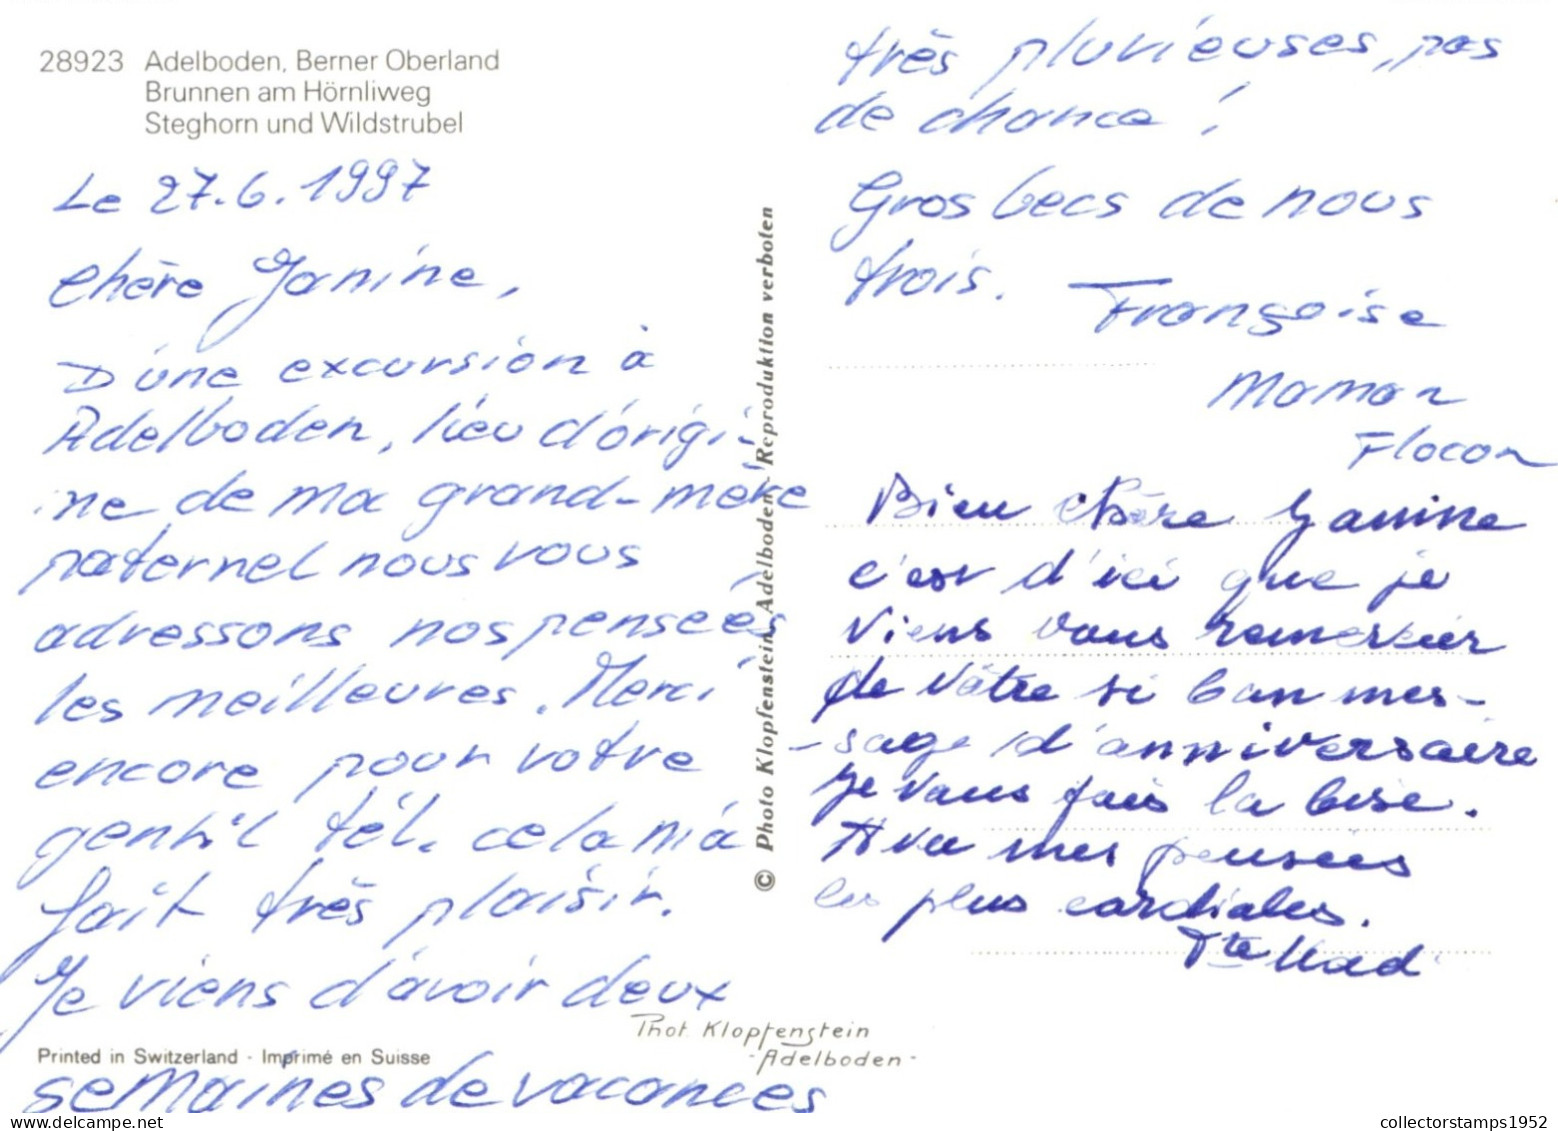 28923 Adelboden, Berner Oberland
Brunnen am Hörnliweg
Steghorn und Wildstrubel
Le 27.6.1997
Chère Janine,
D'une excursion à
Adelboden, lieu d'origi-
ne de ma grand-mère
paternel nous vous
adressons nos pensées
les meilleures. Merci
encore pour votre
gentil tél. cela m'a
fait très plaisir.
Je viens d'avoir deux
semaines de vacances
Printed in Switzerland · Imprimé en Suisse
© Photo Klopfenstein, Adelboden - Reproduktion verboten
Phot. Klopfenstein
- Adelboden -
très pluvieuses, pas
de chance !
Gros becs de nous
trois. Françoise
Maman
Flocon
Bien chère Janine
c'est d'ici que je
viens vous remercier
de vôtre si bon mes-
-sage d'anniversaire
je vous fais la bise.
Avec mes pensées
les plus cardiales.
Tte
collectorstamps1952